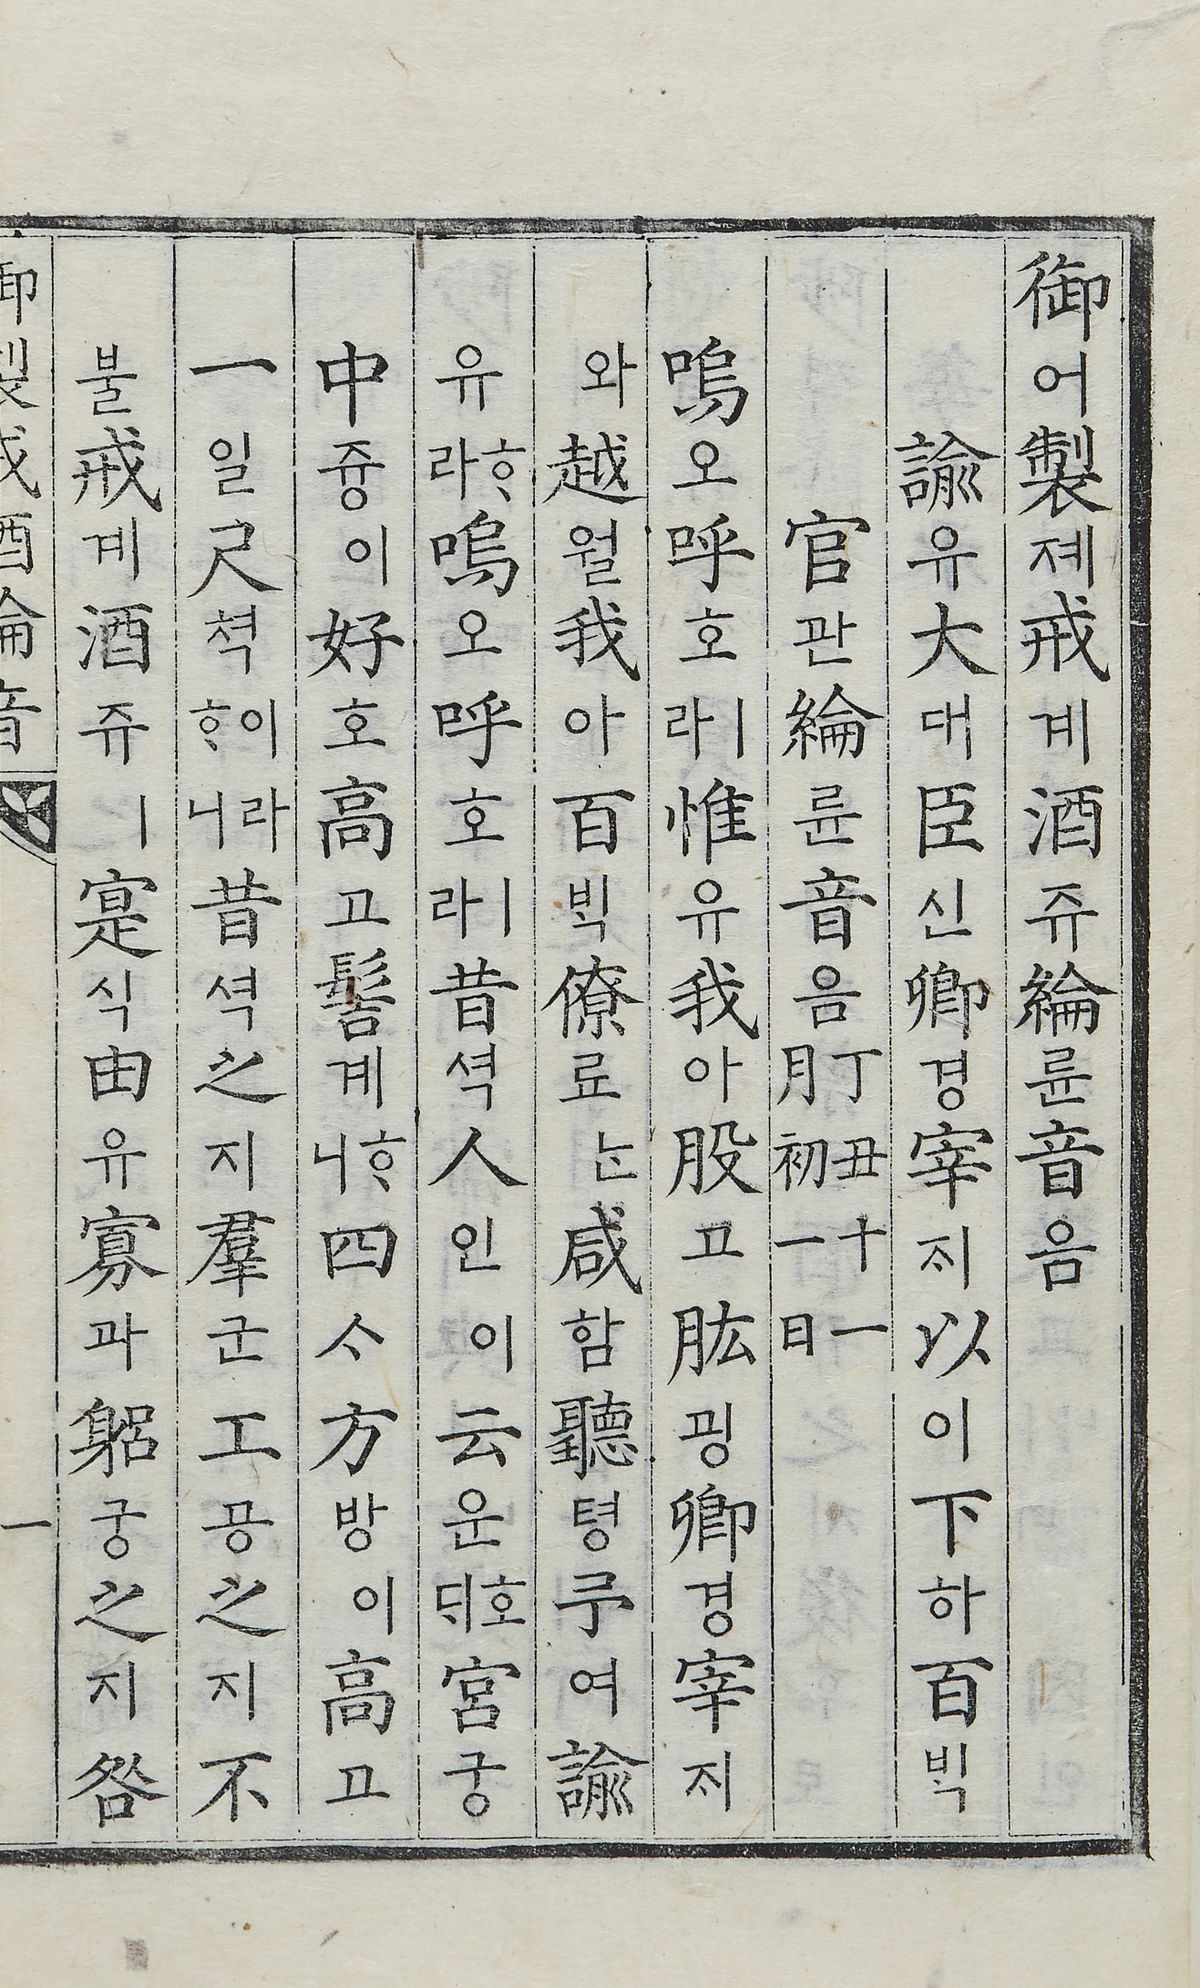 御어製졔戒계酒쥬綸륜音음
諭유大대臣신卿경宰ᄌᆡ以이下하百ᄇᆡᆨ
官관綸륜音음丁丑十一月初一日
嗚오呼호ㅣ라惟유我아股고肱굉卿경宰ᄌᆡ
와越월我아百ᄇᆡᆨ僚료ᄂᆞᆫ咸함聽텽予여諭
유ᄒᆞ라嗚오呼호ㅣ라昔셕人인이云운호ᄃᆡ宮궁
中즁이好호高고髻계ᄒᆞ니四ᄉᆞ方방이高고
一일尺쳑이라ᄒᆞ니昔셕之지羣군工공之지不
불戒계酒쥬ㅣ寔식由유寡과躳궁之지咎
御製戒酒綸音
一